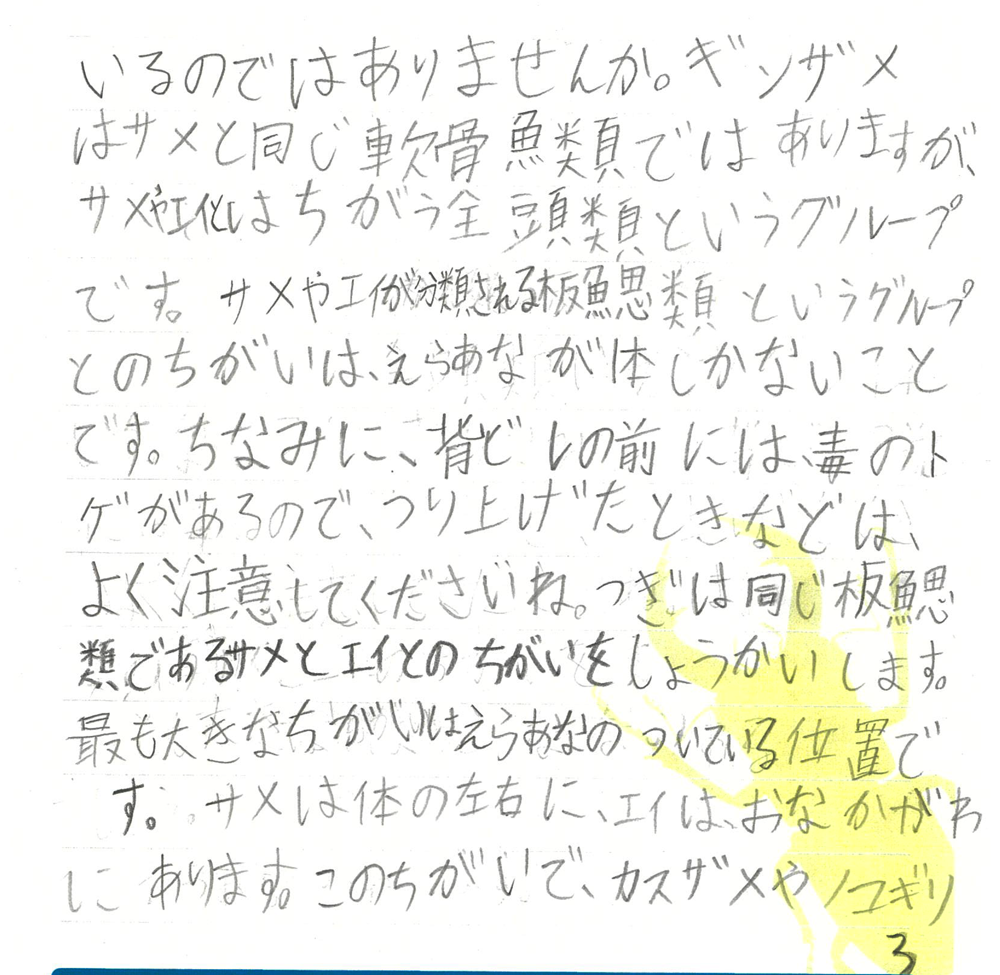 いるのではありませんか。ギンザメ
はサメと同じ軟骨魚類ではありますが、
サメやエイとはちがう全頭類というグループ
です。サメやエイが分類される板鰓類というグループ
とのちがいは、えらあなが1体しかないこと
です。ちなみに、背ビレの前には、毒のト
ゲがあるので、つり上げたときなどは、
よく注意してくださいね。つぎは同じ板鰓
類であるサメとエイとのちがいをしょうかいします。
最も大きなちがいはえらあなのついている位置で
す。サメは体の左右に、エイは、おなかがわ
にあります。このちがいで、カスザメやノコギリ
3